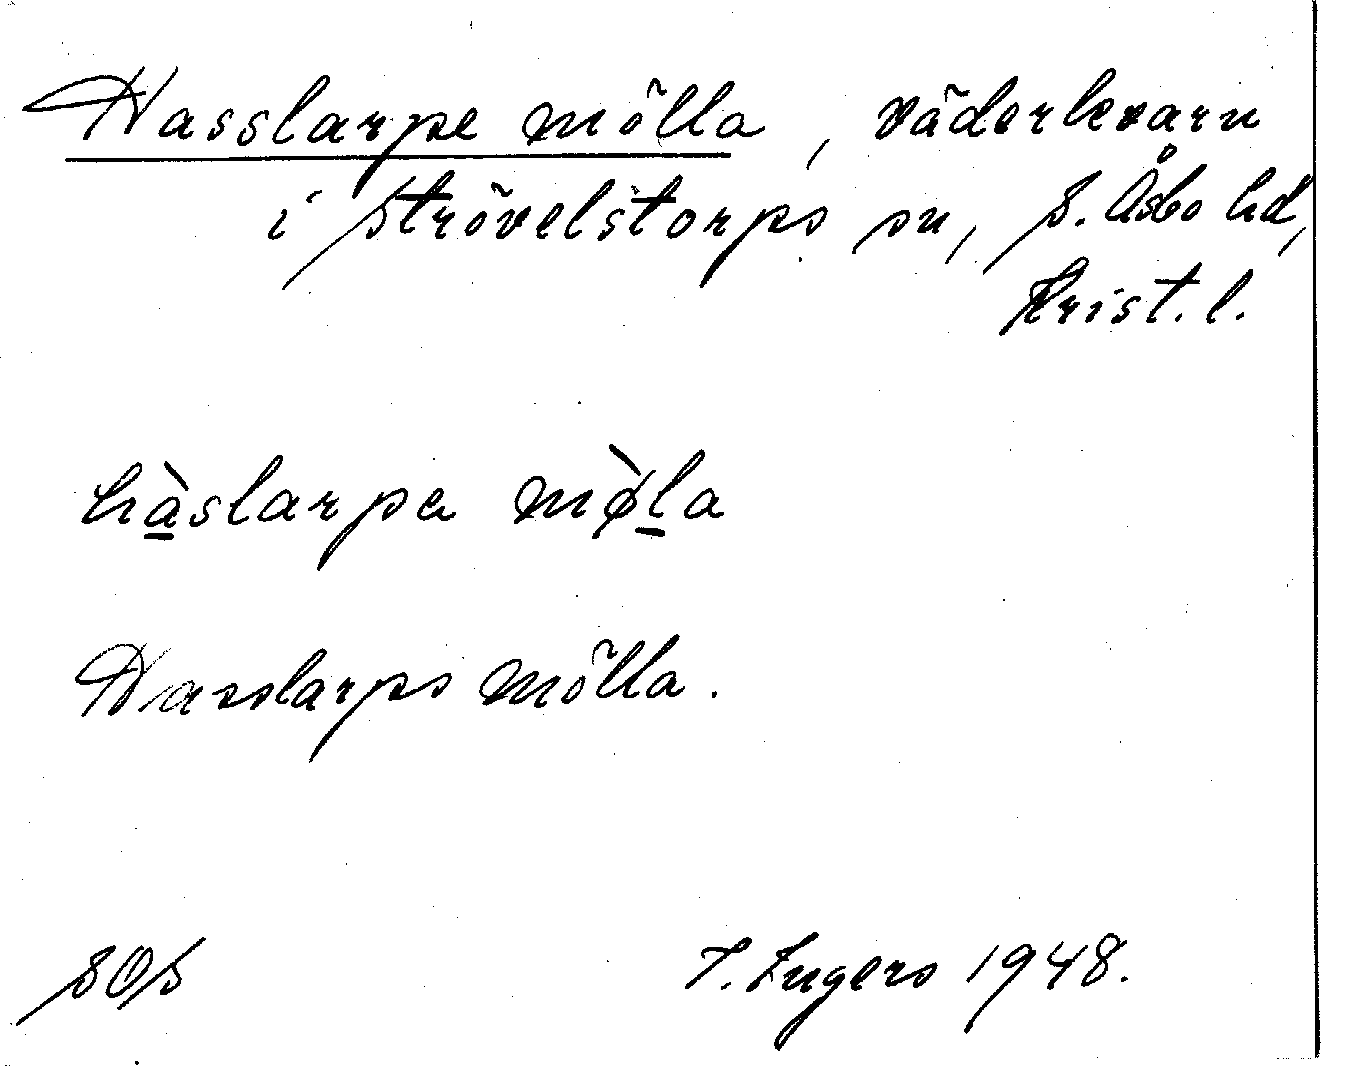 Hasslarpe mölla, väderkvarn
i Strövelstorps sn, S. Åsbo hd,
Krist. l.
hàslarpa mø̀la
Hasslarps mölla.
SOS
I. Ingers 1948.